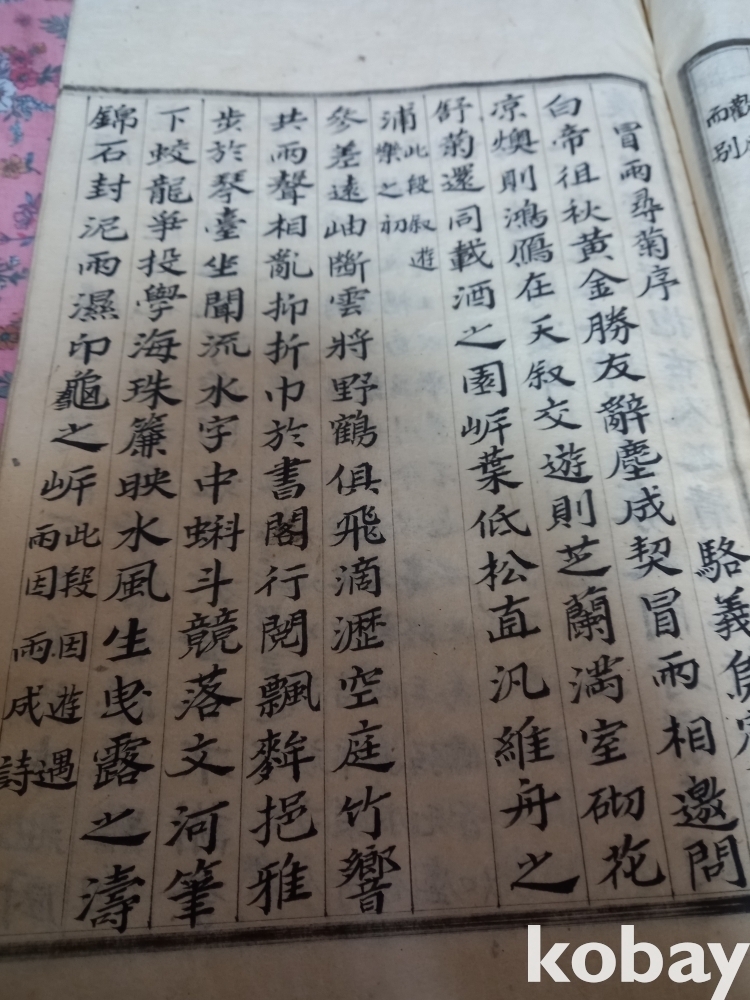 而別
冒雨尋菊序 駱義烏
白帝徂秋黃金勝友辭塵成契冒雨相邀問
凉燠則鴻鴈在天叙交遊則芝蘭滿室砌花
舒菊還同載酒之園岼葉低松直汎維舟之
浦 此段叙遊
樂之初
參差遠岫斷雲將野鶴俱飛滴瀝空庭竹響
共雨聲相亂抑折巾於書閣行閱飄麰挹雅
步於琴臺坐聞流水字中蝌斗競落文河筆
下蛟龍爭投學海珠簾映水風生曳露之濤
錦石封泥雨濕印龜之岼 此段因遊遇
雨因雨成詩
kobay